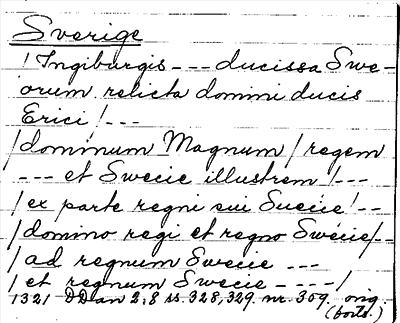 Sverige
/Ingiburgis --- ducissa Swe-
orum relicta domini ducis
Erici/---
/dominum Magnum/regem
--- et Swecie illustrem/---
/ex parte regni sui Suecie/--
/domino regi et regno Swécie/--
/ad regnum Swecie ---
/et regnum Swecie ----/
1321 DDan 2,8 ss. 328,329 nr. 309 orig.
(forts.)